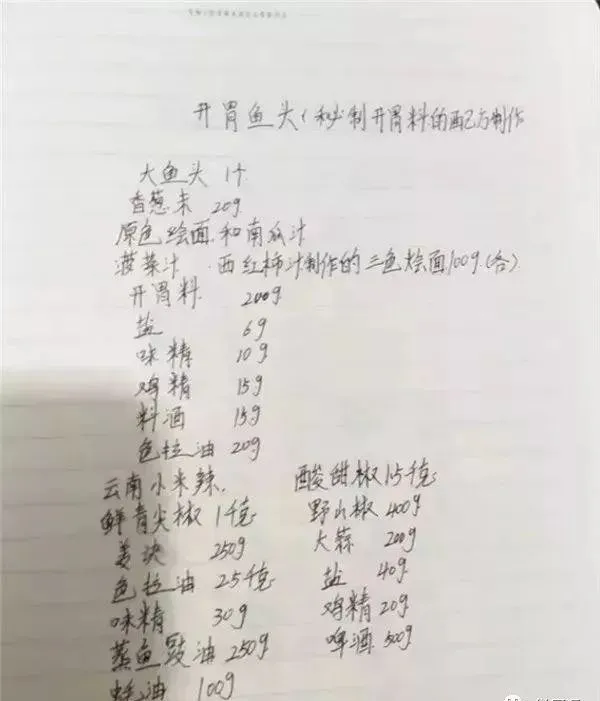 开胃鱼头(秘制开胃料的配方制作
大鱼头 1个
香葱末 20g
原色烩面和南瓜汁
菠菜汁、西红柿汁制作的三色烩面100g(各)
开胃料 200g
盐 6g
味精 10g
鸡精 15g
料酒 15g
色拉油 20g
云南小米辣、 酸甜椒15千克
鲜青尖椒 1千克 野山椒 400g
姜块 250g 大蒜 200g
色拉油 25千克 盐 40g
味精 30g 鸡精 20g
蒸鱼豉油 250g 啤酒 500g
蚝油 100g